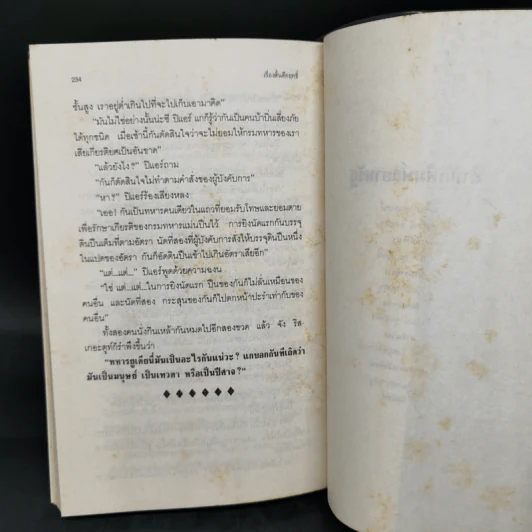 234
เรื่องสั้นคึกฤทธิ์
ชั้นสูง เราอยู่ต่ำเกินไปที่จะไปเก็บเอามาคิด”
“มันไม่ใช่อย่างนั้นน่ะซี ปิแอร์ แกก็รู้ว่ากันเป็นคนบ้าบิ่นเสี่ยงภัย
ได้ทุกชนิด เมื่อเช้านี้กันตัดสินใจว่าจะไม่ยอมให้กรมทหารของเรา
เสียเกียรติยศเป็นอันขาด”
“แล้วยังไง?” ปิแอร์ถาม
“กันก็ตัดสินใจไม่ทำตามคำสั่งของผู้บังคับการ”
“หา?” ปิแอร์ร้องเสียงหลง
“เออ! กันเป็นทหารคนเดียวในแถวที่ยอมรับโทษและยอมตาย
เพื่อรักษาเกียรติของกรมทหารแม่นปืนไว้ การยิงนัดแรกกันบรรจุ
ดินปืนเต็มที่ตามอัตรา นัดที่สองที่ผู้บังคับการสั่งให้บรรจุดินปืนหนึ่ง
ในแปดของอัตรา กันก็อัดดินปืนเข้าไปเกินอัตราเสียอีก”
“แต่...แต่...” ปิแอร์พูดด้วยความฉงน
“ใช่ แต่...แต่...ในการยิงนัดแรก ปืนของกันก็ไม่ลั่นเหมือนของ
คนอื่น และนัดที่สอง กระสุนของกันก็ไปตกหน้าปะรำเท่ากับของ
คนอื่น”
ทั้งสองคนนั่งกินเหล้ากันหมดไปอีกสองขวด แล้ว จัง ริส-
เกอะตูท์ก็รำพึงขึ้นว่า
“ทหารยูเดียนี่มันเป็นอะไรกันแน่วะ? แกบอกกันทีเถิดว่า
มันเป็นมนุษย์ เป็นเทวดา หรือเป็นปีศาจ?”